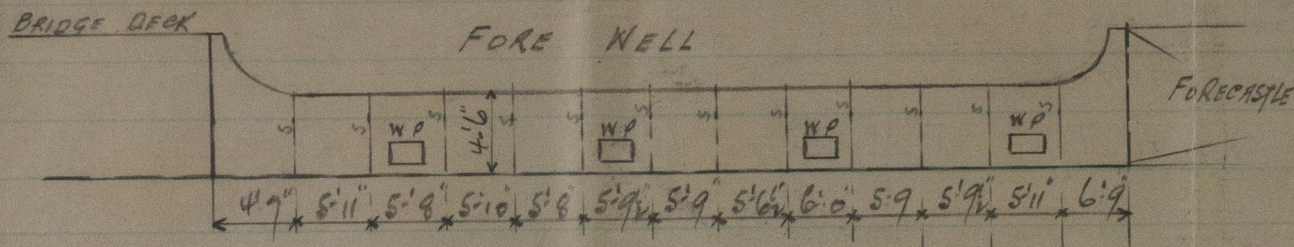 BRIDGE DECK
FORE WELL
FORECASTLE
S S S S S S S S S S S S
WP WP WP WP
4'-6"
4'-9" 5'-11" 5'-8" 5'-10" 5'-8" 5'-9½" 5'-9" 5'-6½" 6'-0" 5'-9 5'-9½" 5'-11" 6'-9"